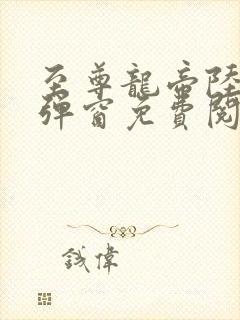 至尊龍帝陸
彈窗免費閱
錢偉